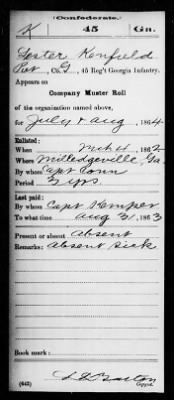 (Confederate.)
K 45 Ga.
Lester Kenfield
Pvt, Co. G, 45 Reg't Georgia Infantry.
Appears on
Company Muster Roll
of the organization named above,
for July & Aug, 1864
Enlisted:
When Mch 4, 1862
Where Milledgeville, Ga.
By whom Capt Conn
Period 3 yrs.
Last paid:
By whom Capt Kemper
To what time Aug 31, 1863
Present or absent Absent
Remarks: Absent Sick
Book mark:
(642)
Copyist.